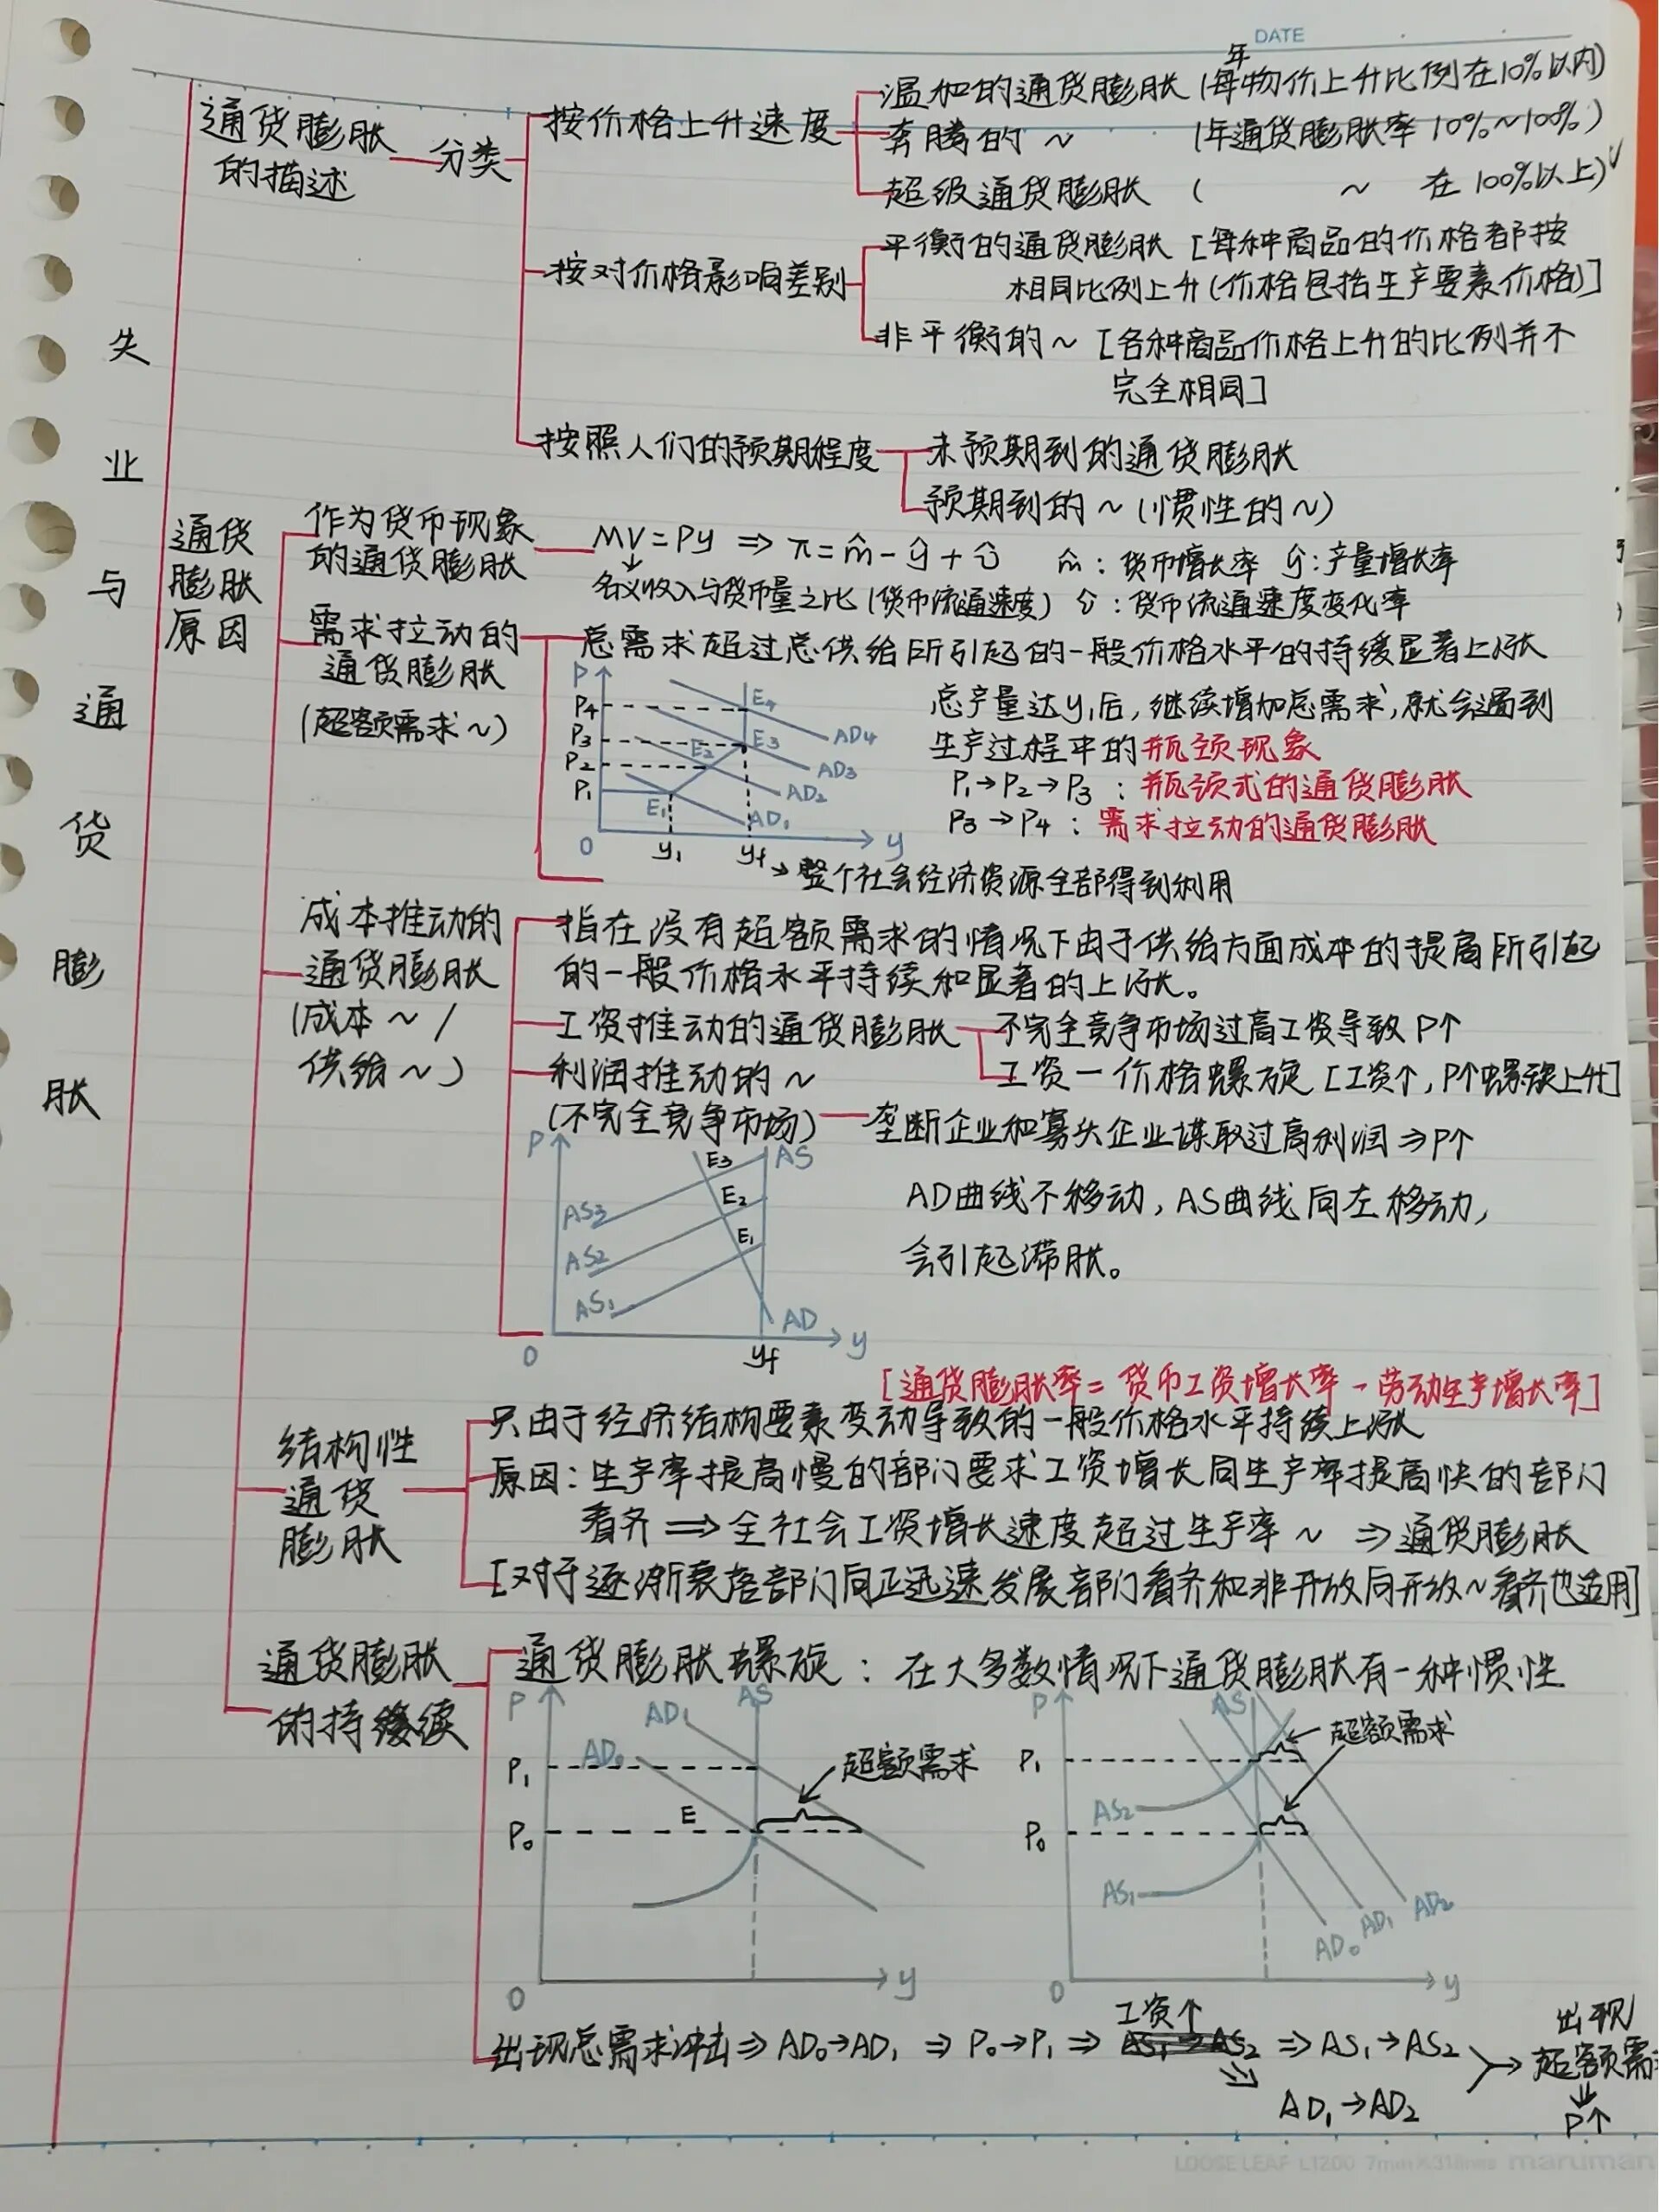 DATE
失业与通货膨胀
通货膨胀
的描述
分类
按价格上升速度
温和的通货膨胀 (每年物价上升比例在10%以内)
奔腾的 ~ (年通货膨胀率 10%~100%)
超级通货膨胀 ( ~ 在100%以上)
按对价格影响差别
平衡的通货膨胀 [每种商品的价格都按
相同比例上升(价格包括生产要素价格)]
非平衡的 ~ [各种商品价格上升的比例并不
完全相同]
按照人们的预期程度
未预期到的通货膨胀
预期到的 ~ (惯性的 ~)
通货
膨胀
原因
作为货币现象
的通货膨胀
MV = Py ⇒ π = m̂ - ŷ + v̂ m̂: 货币增长率 ŷ: 产量增长率
名义收入与货币量之比 (货币流通速度) v̂: 货币流通速度变化率
需求拉动的
通货膨胀
(超额需求 ~)
总需求超过总供给所引起的一般价格水平的持续显著上涨
P
P4
P3
P2
P1
E4
E3
E2
E1
AD4
AD3
AD2
AD1
0
y1
yf
y
总产量达y1后, 继续增加总需求, 就会遇到
生产过程中的瓶颈现象
P1→P2→P3 : 瓶颈式的通货膨胀
P3→P4 : 需求拉动的通货膨胀
→ 整个社会经济资源全部得到利用
成本推动的
通货膨胀
(成本 ~ /
供给 ~)
指在没有超额需求的情况下由于供给方面成本的提高所引起
的一般价格水平持续和显著的上涨。
工资推动的通货膨胀
不完全竞争市场过高工资导致P↑
工资—价格螺旋 [工资↑, P↑螺旋上升]
利润推动的 ~
(不完全竞争市场)
垄断企业和寡头企业谋取过高利润 ⇒ P↑
P
E3
AS
E2
E1
AS3
AS2
AS1
AD
0
yf
y
AD曲线不移动, AS曲线向左移动,
会引起滞胀。
[通货膨胀率 = 货币工资增长率 - 劳动生产增长率]
结构性
通货
膨胀
只由于经济结构要素变动导致的一般价格水平持续上涨
原因: 生产率提高慢的部门要求工资增长向生产率提高快的部门
看齐 ⇒ 全社会工资增长速度超过生产率 ~ ⇒ 通货膨胀
[对于逐渐衰落部门向正迅速发展部门看齐和非开放向开放~看齐也适用]
通货膨胀
的持续
通货膨胀螺旋: 在大多数情况下通货膨胀有一种惯性
P
AD1
AS
AD0
P1
超额需求
E
P0
0
y
P
AS
超额需求
P1
AS2
P0
AS1
AD2
AD1
AD0
0
y
出现总需求冲击 ⇒ AD0→AD1 ⇒ P0→P1 ⇒ 工资↑ ⇒ AS1→AS2
⇒ AD1→AD2
→ 出现
超额需
⇓
P↑
LOOSE LEAF L1200 7mm×31lines maruman